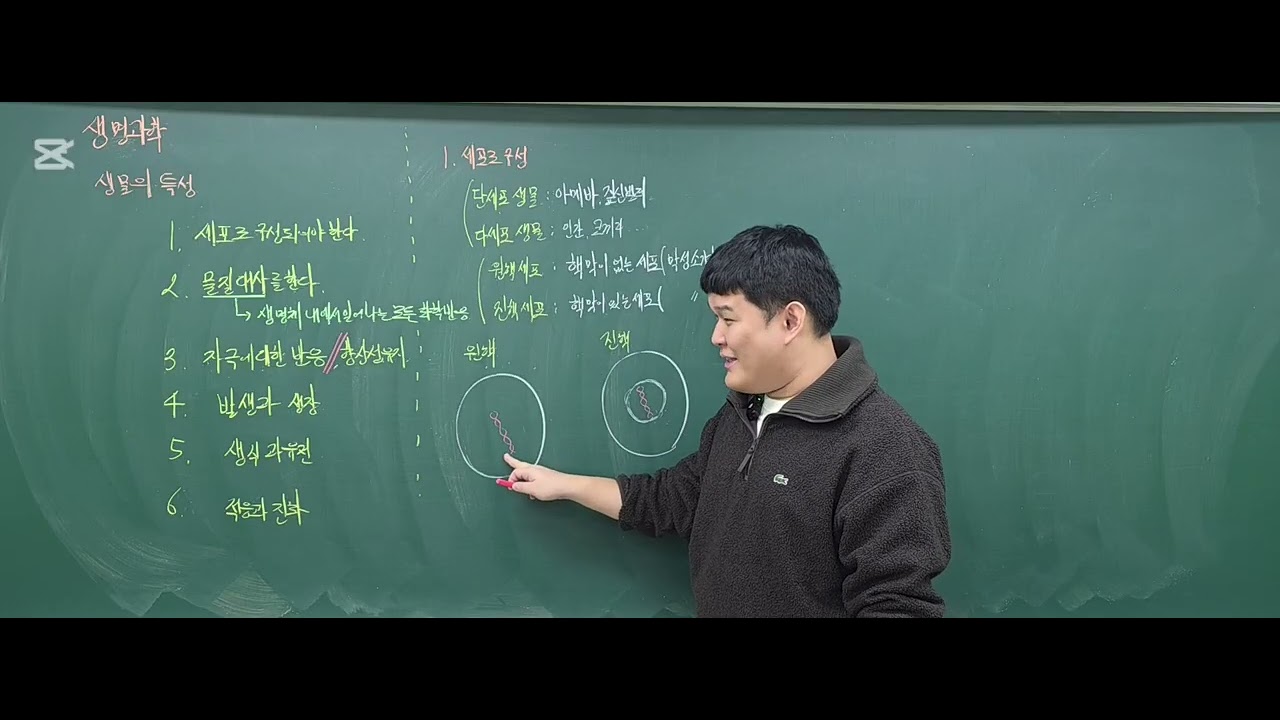 생명과학
생물의 특성
1. 세포로 구성되어야 한다.
2. 물질대사를 한다.
↳ 생명체 내에서 일어나는 모든 화학반응
3. 자극에 대한 반응 // 항상성 유지
4. 발생과 생장
5. 생식과 유전
6. 적응과 진화
1. 세포로 구성
단세포 생물 : 아메바, 짚신벌레
다세포 생물 : 인간, 코끼리 ...
원핵세포 : 핵막이 없는 세포(막성소기
진핵세포 : 핵막이 있는 세포( "
원핵
진핵